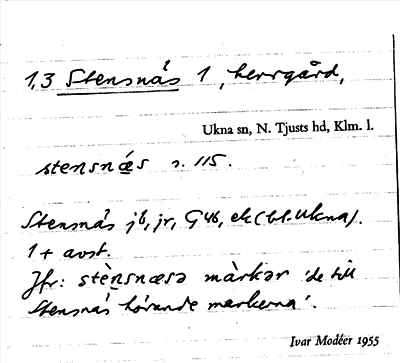 1,3 Stensnäs 1, herrgård,
Ukna sn, N. Tjusts hd, Klm. l.
stensnǽs s. 115.
Stensnäs jb, jr, G46, ek (bl. Ukna).
1 + avst.
Jfr: stènsnæsə màrkər 'de till
Stensnäs hörande markerna'.
Ivar Modéer 1955